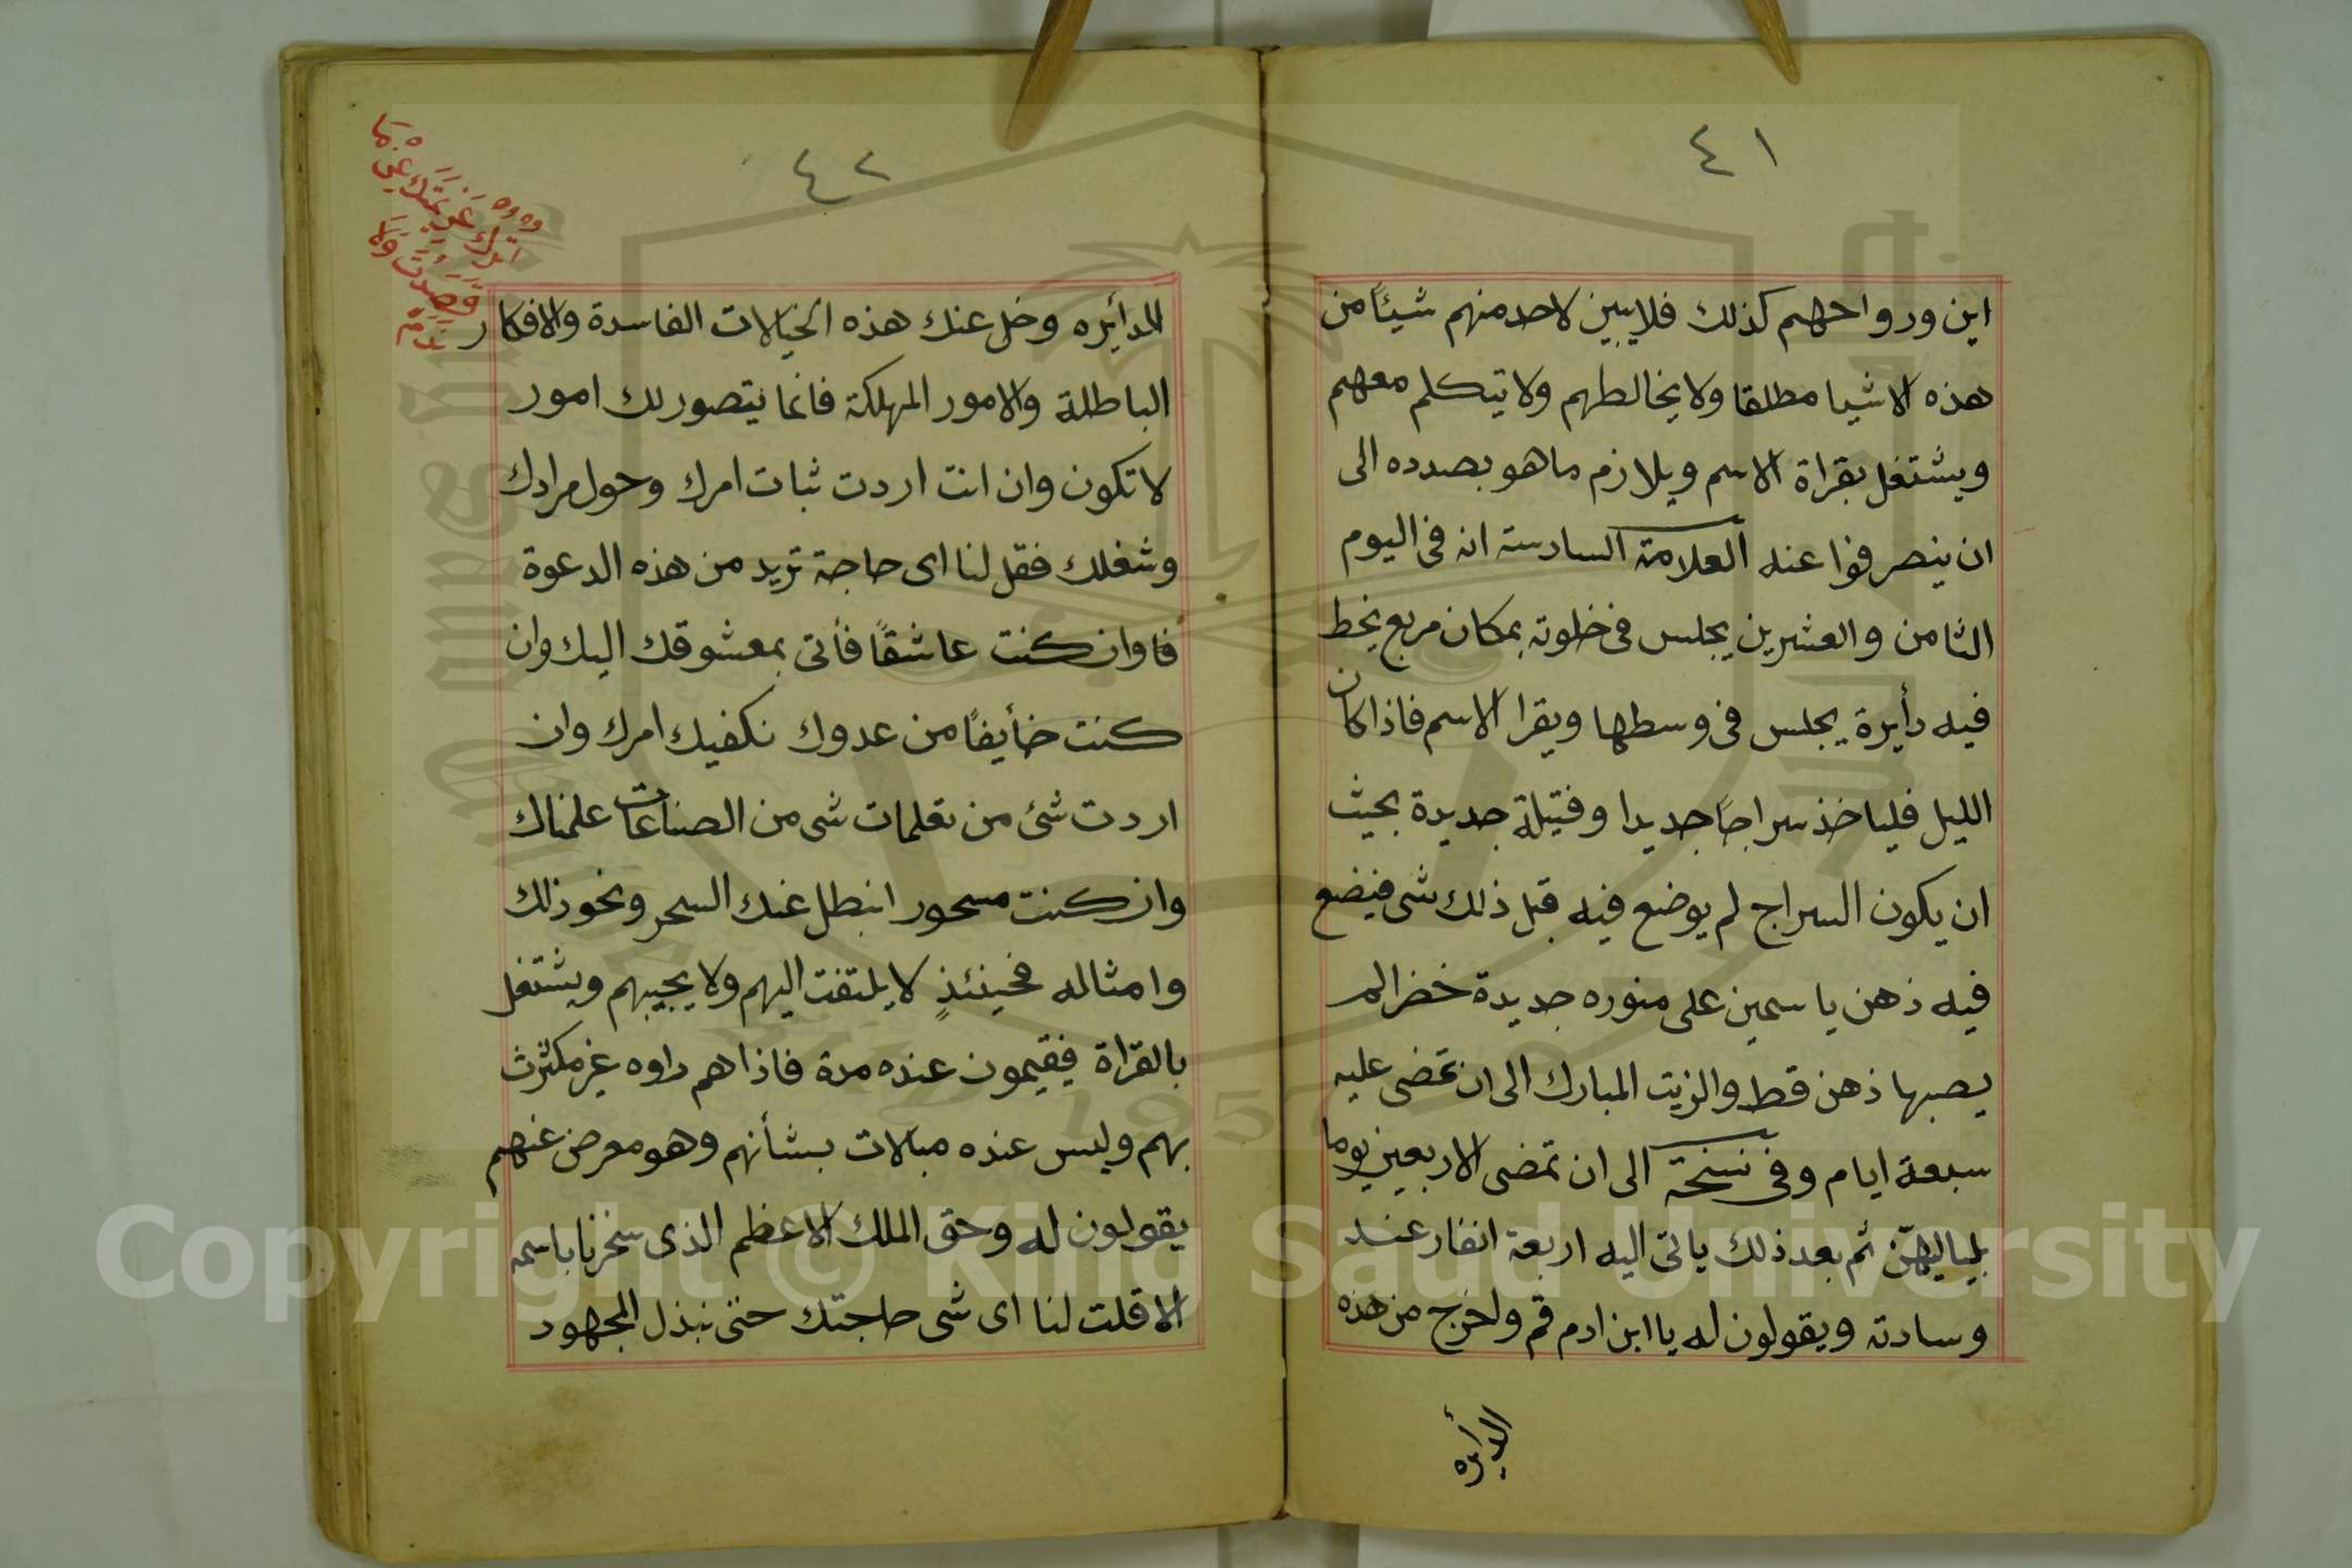 ٤١
اين ورواحهم كذلك فلايبين لاحد منهم شيئًا من
هذه الاشيا مطلقا ولا يخالطهم ولا يتكلم معهم
ويشتغل بقراة الاسم ويلازم ما هو بصدده الى
ان ينصرفوا عنه العلامة السادسة انه فى اليوم
الثامن والعشرين يجلس فى خلوته بمكان مربع يخط
فيه دأيرة يجلس فى وسطها ويقرا الاسم فاذا كان
الليل فلياخذ سراجًا جديدا وفتيلة جديدة بحيث
ان يكون السراج لم يوضع فيه قبل ذلك شى فيضع
فيه ذهن ياسمين على منوره جديدة خضرا لم
يصبها ذهن قط والزيت المبارك الى ان تمضى عليه
سبعة ايام وفى نسخة الى ان تمضى الاربعين يوما
بلياليهنّ ثم بعد ذلك ياتى اليه اربعة انفار عند
وسادته ويقولون له يا ابن ادم قم ولخرج من هذه
الدأيره
٤٢
الدأيره وخل عنك هذه الخيالات الفاسدة والافكار
الباطلة والامور المهلكة فانما يتصور لك امور
لا تكون وان انت اردت ثبات امرك وحول مرادك
وشغلك فقل لنا اى حاجة تريد من هذه الدعوة
فا وان كنت عاشقًا فأتى بمعشوقك اليك وان
كنت خأيفًا من عدوك نكفيك امرك وان
اردت شئ من تعلمات شى من الصناعات علمناك
وان كنت مسحور انبطل عنك السحر ونحو ذلك
وامثاله فحينئذٍ لا يلتفت اليهم ولا يجيبهم ويشتغل
بالقراة فيقيمون عنده مدة فاذا هم راوه غير مكترث
بهم وليس عنده مبالات بشأنهم وهو معرض عنهم
يقولون له وحق الملك الاعظم الذى سخرنا باسمه
الا قلت لنا اى شى حاجتك حتى نبذل المجهود
Copyright © King Saud University
1957